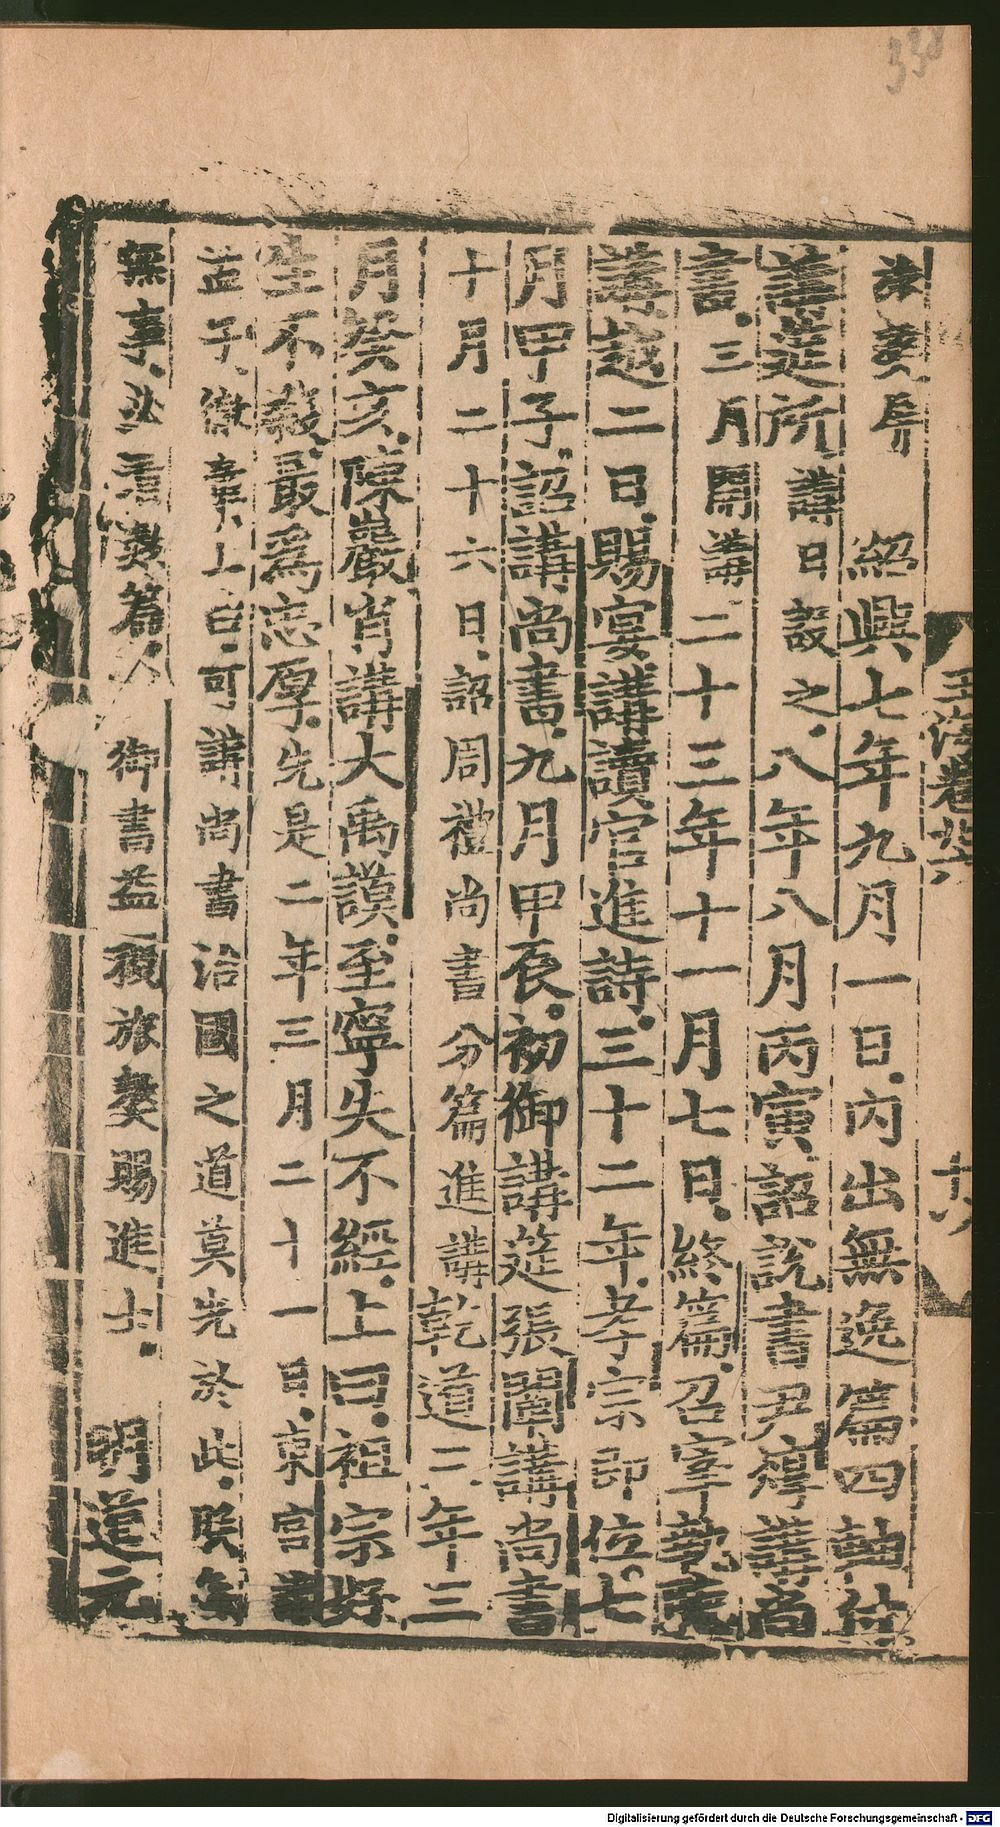 338
玉海卷廿六
紹興七年九月一日、内出無逸篇四軸
講筵所講日設之、八年八月丙寅詔說書尹焞講尚
書、三月開講二十三年十一月七日、終篇、召宰執
講、越二日、賜宴、講讀官進詩、三十二年、孝宗即位、七
月甲子、詔講尚書、九月甲辰、初御講筵張闡講尚書
十月二十六日、詔周禮尚書分篇進講乾道三年三
月癸亥、陳巖肖講大禹謨、至寧失不經、上曰、祖宗好
生不殺、最爲忠厚、先是二年三月二十一日、東宮講
孟子徹章、上曰、可講尚書治國之道莫先於此
無事、必看數篇 御書益稷旅獒賜進士、 明道元
Digitalisierung gefördert durch die Deutsche Forschungsgemeinschaft - DFG